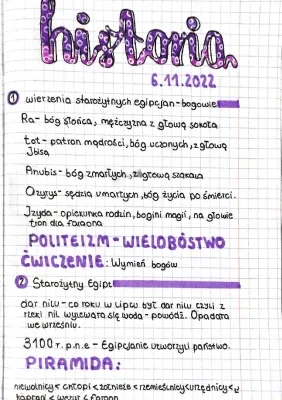 historia
6.11.2022
1 wierzenia starożytnych egipcjan - bogowie
Ra - bóg słońca, mężczyzna z głową sokoła
tot - patron mądrości, bóg uczonych, z głową
Ibisa
Anubis - bóg zmarłych, z głową szakala
Ozyrys - sędzia umarłych, bóg życia po śmierci.
Izyda - opiekunka rodzin, bogini magii, na głowie
tron dla faraona
POLITEIZM - WIELOBÓSTWO
ĆWICZENIE: Wymień bogów
2 Starożytny Egipt
dar nilu - co roku w Lipcu był dar nilu czyli z
rzeki nil wylewała się woda - powódź. Opadała
we wrześniu.
3100 r. p.n.e - Egipcjanie utworzyli państwo.
PIRAMIDA:
niewolnicy < chłopi < żołnieże < rzemieślnicy < urzędnicy <
kapłani < wezyr < faraon